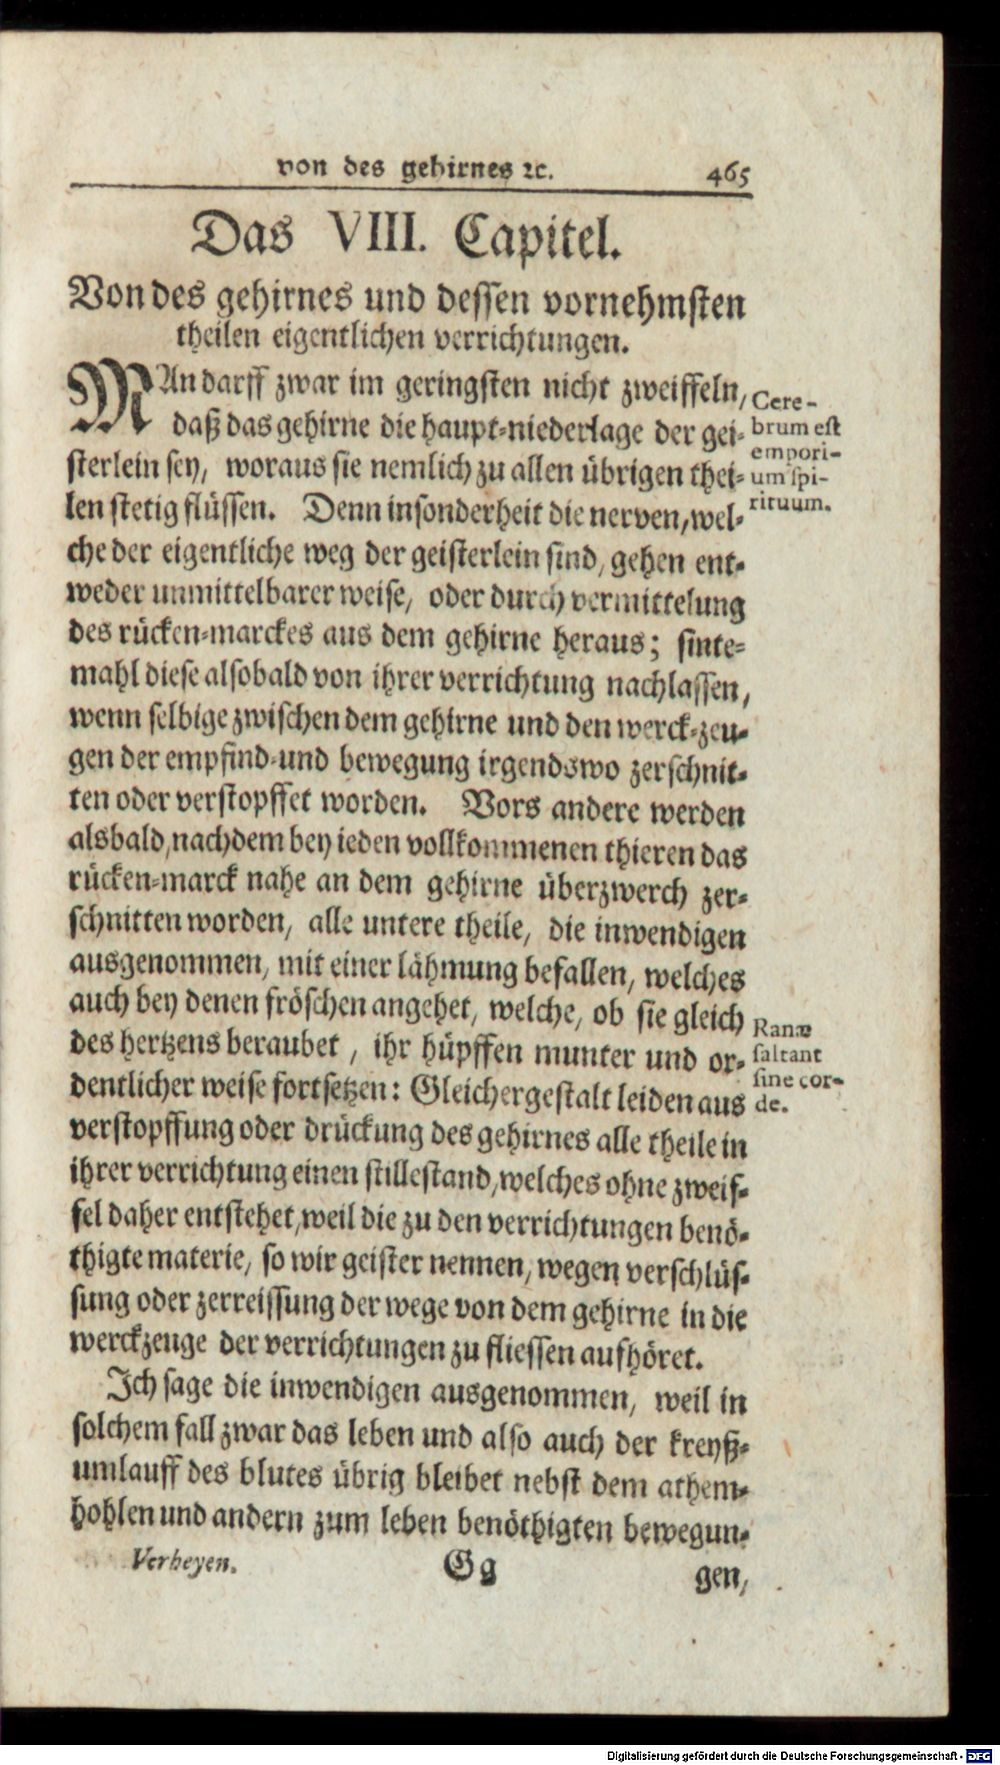 von des gehirnes ꝛc. 465
Das VIII. Capitel.
Von des gehirnes und dessen vornehmsten
theilen eigentlichen verrichtungen.
MAn darff zwar im geringsten nicht zweiffeln,
daß das gehirne die haupt-niederlage der gei-
sterlein sey, woraus sie nemlich zu allen übrigen thei-
len stetig flüssen. Denn insonderheit die nerven, wel-
che der eigentliche weg der geisterlein sind, gehen ent-
weder unmittelbarer weise, oder durch vermittelung
des rücken-marckes aus dem gehirne heraus; sinte-
mahl diese alsobald von ihrer verrichtung nachlassen,
wenn selbige zwischen dem gehirne und den werck-zeu-
gen der empfind-und bewegung irgendswo zerschnit-
ten oder verstopffet worden. Vors andere werden
alsbald, nachdem bey ieden vollkommenen thieren das
rücken-marck nahe an dem gehirne überzwerch zer-
schnitten worden, alle untere theile, die inwendigen
ausgenommen, mit einer lähmung befallen, welches
auch bey denen fröschen angehet, welche, ob sie gleich
des hertzens beraubet, ihr hüpffen munter und or-
dentlicher weise fortsetzen: Gleichergestalt leiden aus
verstopffung oder drückung des gehirnes alle theile in
ihrer verrichtung einen stillestand, welches ohne zweif-
fel daher entstehet, weil die zu den verrichtungen benö-
thigte materie, so wir geister nennen, wegen verschlüs-
sung oder zerreissung der wege von dem gehirne in die
werckzeuge der verrichtungen zu fliessen aufhöret.
Ich sage die inwendigen ausgenommen, weil in
solchem fall zwar das leben und also auch der kreyß-
umlauff des blutes übrig bleibet nebst dem athem-
hohlen und andern zum leben benöthigten bewegun-
Verheyen. Gg gen,
Cere-
brum est
empori-
um spi-
rituum.
Ranæ
saltant
sine cor-
de.
Digitalisierung gefördert durch die Deutsche Forschungsgemeinschaft - DFG